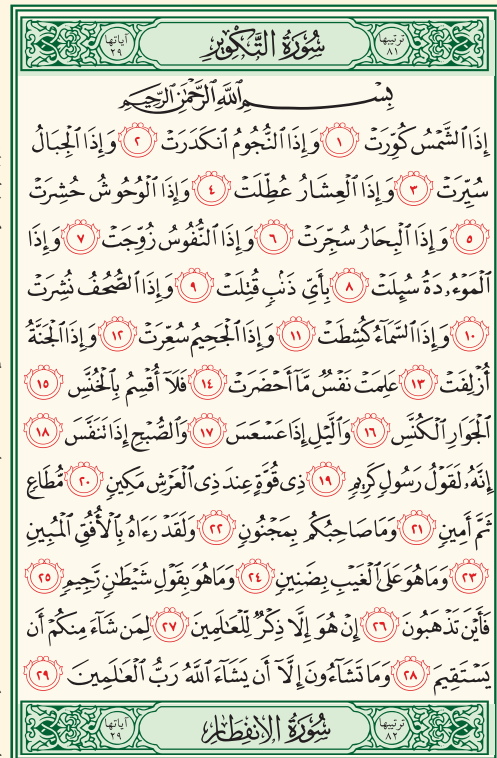 ترتيبها ٨١ سُورَةُ التَّكْوِيرِ آياتها ٢٩
بِسْمِ ٱللَّهِ ٱلرَّحْمَٰنِ ٱلرَّحِيمِ
إِذَا ٱلشَّمْسُ كُوِّرَتْ ١ وَإِذَا ٱلنُّجُومُ ٱنكَدَرَتْ ٢ وَإِذَا ٱلْجِبَالُ
سُيِّرَتْ ٣ وَإِذَا ٱلْعِشَارُ عُطِّلَتْ ٤ وَإِذَا ٱلْوُحُوشُ حُشِرَتْ
٥ وَإِذَا ٱلْبِحَارُ سُجِّرَتْ ٦ وَإِذَا ٱلنُّفُوسُ زُوِّجَتْ ٧ وَإِذَا
ٱلْمَوْءُۥدَةُ سُئِلَتْ ٨ بِأَيِّ ذَنۢبٍ قُتِلَتْ ٩ وَإِذَا ٱلصُّحُفُ نُشِرَتْ
١٠ وَإِذَا ٱلسَّمَآءُ كُشِطَتْ ١١ وَإِذَا ٱلْجَحِيمُ سُعِّرَتْ ١٢ وَإِذَا ٱلْجَنَّةُ
أُزْلِفَتْ ١٣ عَلِمَتْ نَفْسٌ مَّآ أَحْضَرَتْ ١٤ فَلَآ أُقْسِمُ بِٱلْخُنَّسِ ١٥
ٱلْجَوَارِ ٱلْكُنَّسِ ١٦ وَٱلَّيْلِ إِذَا عَسْعَسَ ١٧ وَٱلصُّبْحِ إِذَا تَنَفَّسَ ١٨
إِنَّهُۥ لَقَوْلُ رَسُولٍ كَرِيمٍ ١٩ ذِى قُوَّةٍ عِندَ ذِى ٱلْعَرْشِ مَكِينٍ ٢٠ مُّطَاعٍ
ثَمَّ أَمِينٍ ٢١ وَمَا صَاحِبُكُم بِمَجْنُونٍ ٢٢ وَلَقَدْ رَءَاهُ بِٱلْأُفُقِ ٱلْمُبِينِ
٢٣ وَمَا هُوَ عَلَى ٱلْغَيْبِ بِضَنِينٍ ٢٤ وَمَا هُوَ بِقَوْلِ شَيْطَٰنٍ رَّجِيمٍ ٢٥
فَأَيْنَ تَذْهَبُونَ ٢٦ إِنْ هُوَ إِلَّا ذِكْرٌ لِّلْعَٰلَمِينَ ٢٧ لِمَن شَآءَ مِنكُمْ أَن
يَسْتَقِيمَ ٢٨ وَمَا تَشَآءُونَ إِلَّآ أَن يَشَآءَ ٱللَّهُ رَبُّ ٱلْعَٰلَمِينَ ٢٩
ترتيبها ٨٢ سُورَةُ الِانْفِطَارِ آياتها ٢٩